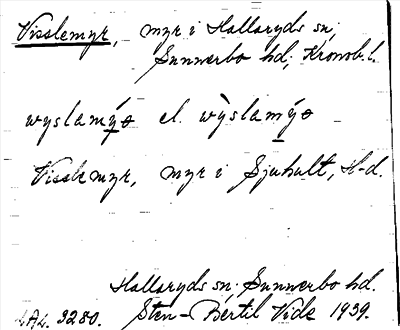 Visslemyr, myr i Hallaryds sn;
Sunnerbo hd; Kronob. l.
wyslamýɵ el. wỳslamýɵ
Visslemyr, myr i Sjuhult, H-d.
Hallaryds sn; Sunnerbo hd.
LAL. 3280. Sten-Bertil Vide 1939.